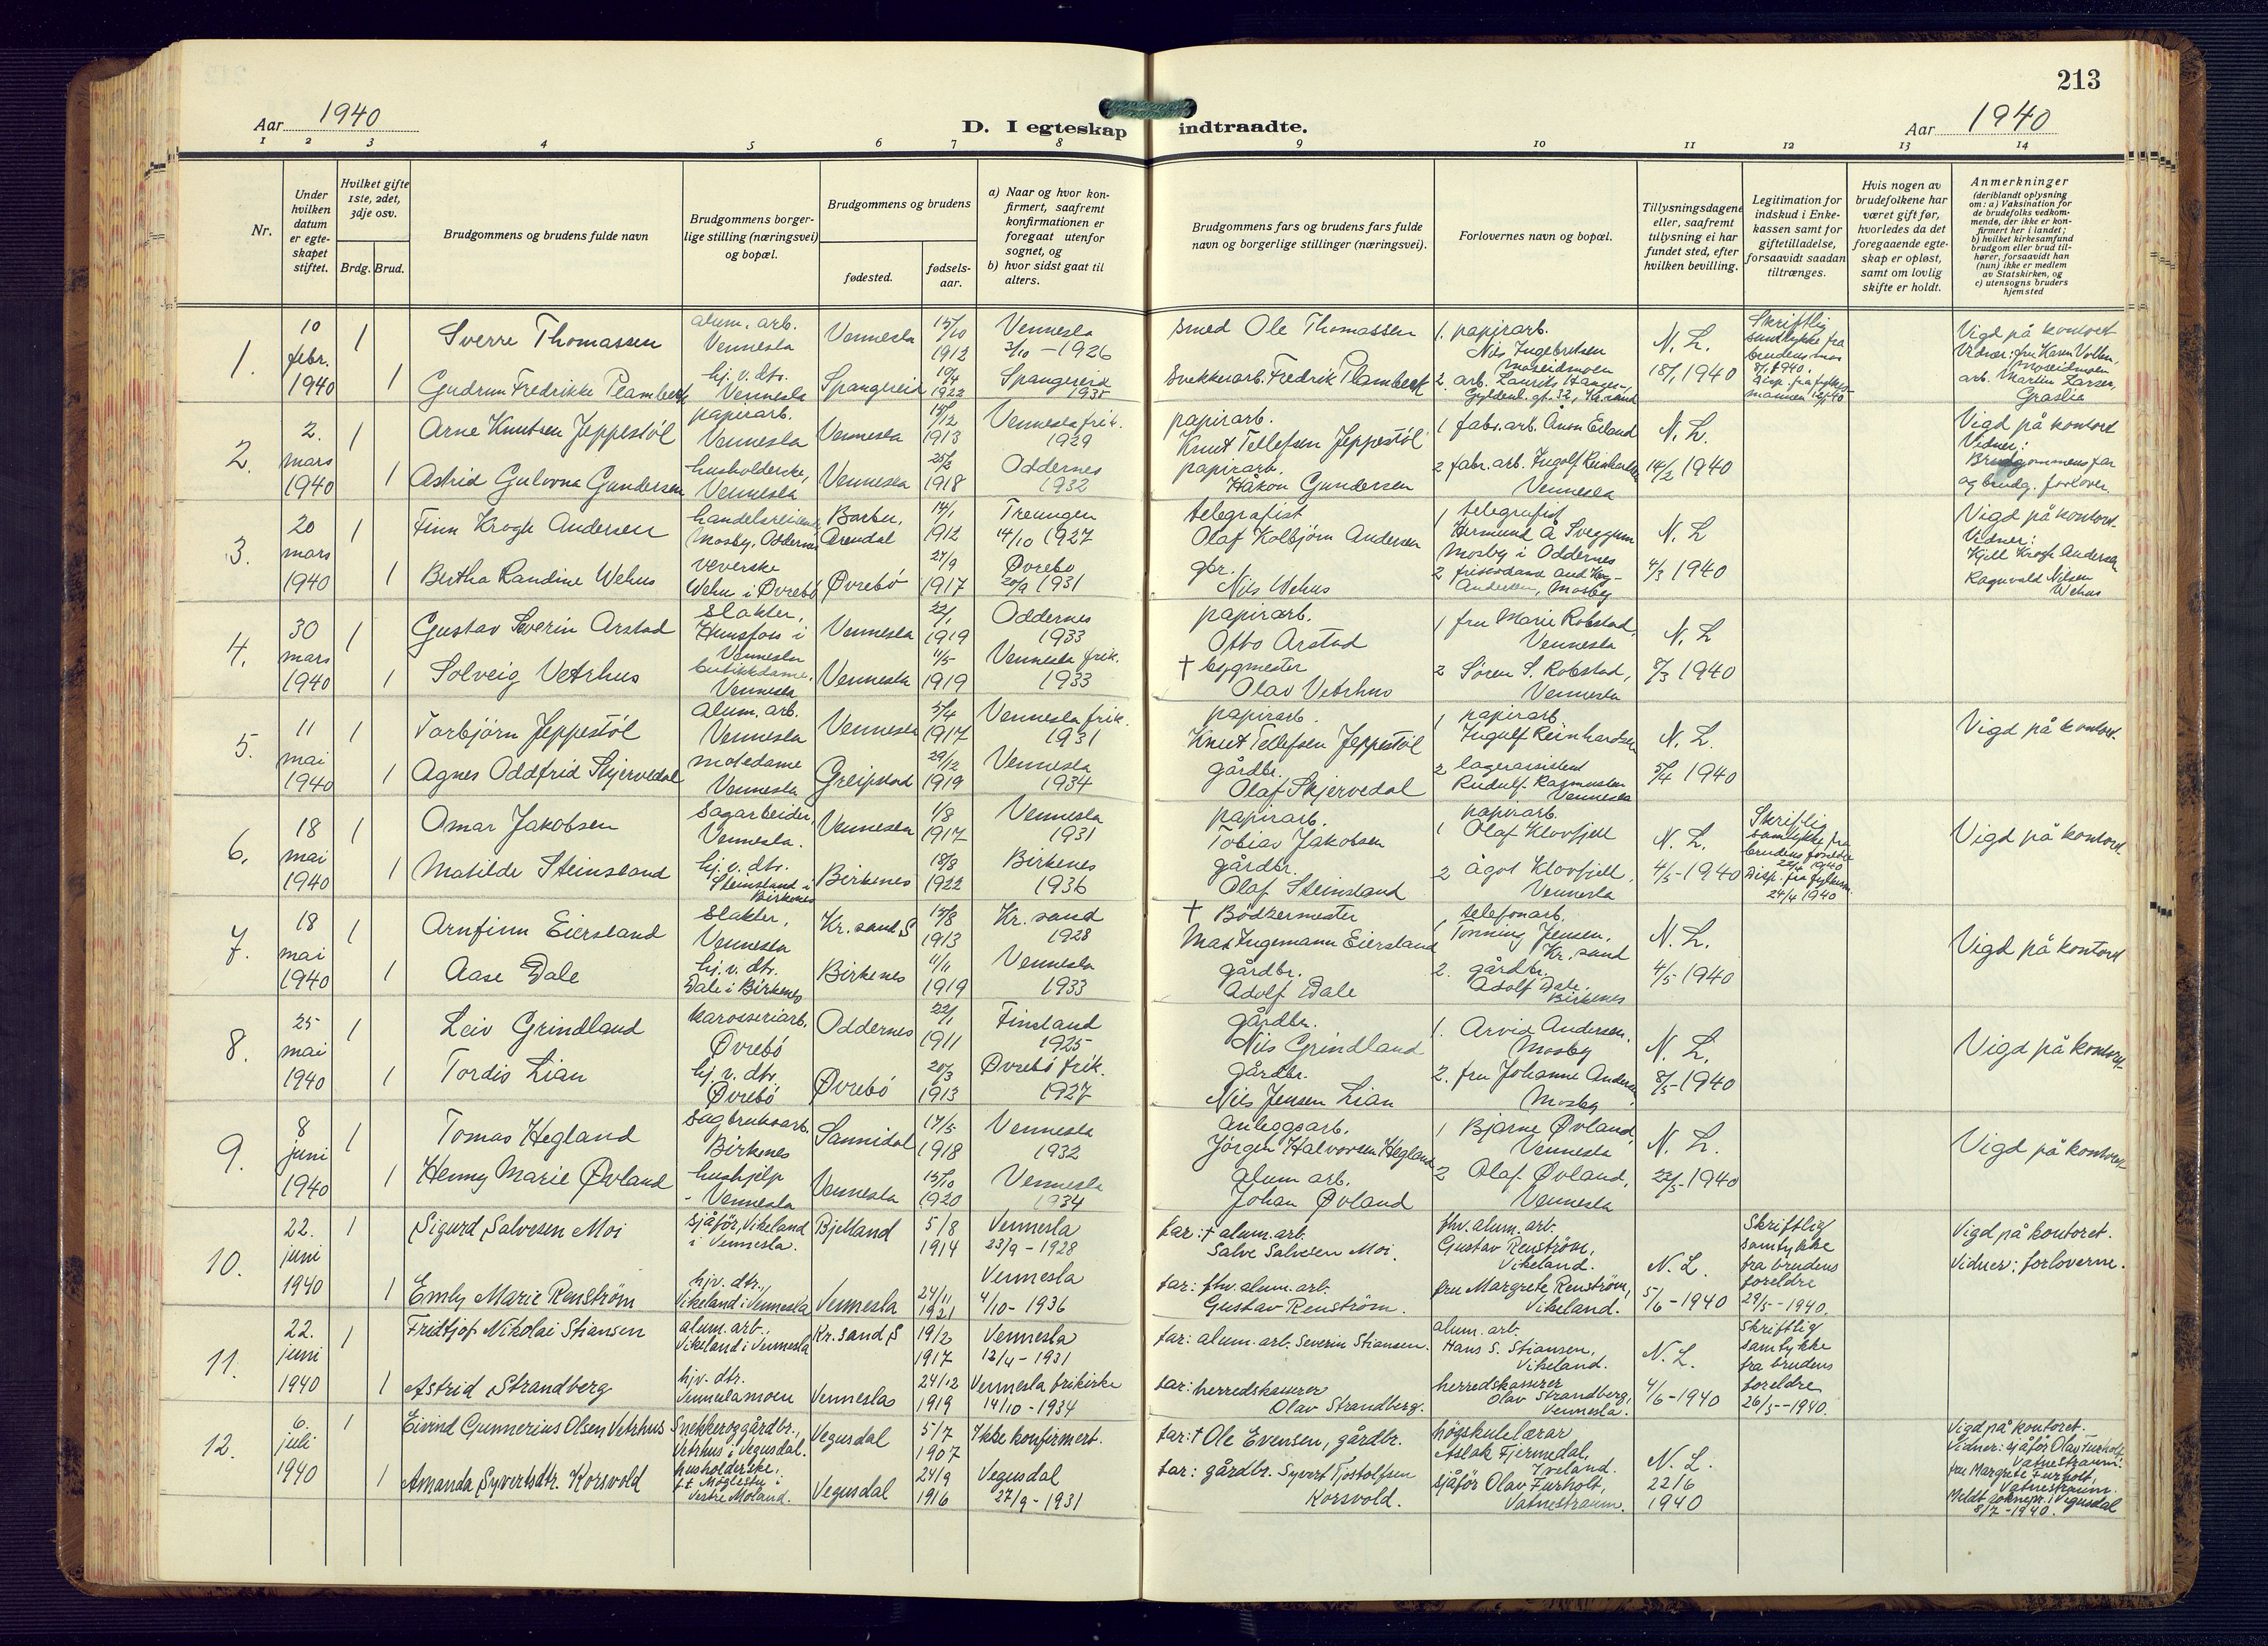 213
Aar 1940
D. I egteskap indtraadte.
Aar 1940
1 2 3 4 5 6 7 8 9 10 11 12 13 14
Nr.
Under
hvilken
datum
er egte-
skapet
stiftet.
Hvilket gifte
1ste, 2det,
3dje osv.
Brdg. Brud.
Brudgommens og brudens fulde navn
Brudgommens borger-
lige stilling (næringsvei)
og bopæl.
Brudgommens og brudens
fødested.
fødsels-
aar.
a) Naar og hvor kon-
firmert, saafremt
konfirmationen er
foregaat utenfor
sognet, og
b) hvor sidst gaat til
alters.
Brudgommens fars og brudens fars fulde
navn og borgerlige stillinger (næringsvei).
Forlovernes navn og bopæl.
Tillysningsdagene
eller, saafremt
tillysning ei har
fundet sted, efter
hvilken bevilling.
Legitimation for
indskud i Enke-
kassen samt for
giftetilladelse,
forsaavidt saadan
tiltrænges.
Hvis nogen av
brudefolkene har
været gift før,
hvorledes da det
foregaaende egte-
skap er opløst,
samt om lovlig
skifte er holdt.
Anmerkninger
(deriblandt oplysning
om: a) Vaksination for
de brudefolks vedkom-
mende, der ikke er kon-
firmert her i landet;
b) hvilket kirkesamfund
brudgom eller brud til-
hører, forsaavidt han
(hun) ikke er medlem
av Statskirken, og
c) utensogns bruders
hjemsted
1.
10
febr.
1940
1
Sverre Thomassen
alum. arb.
Vennesla
Vennesla
15/10
1912
Vennesla
3/10 - 1926
smed Ole Thomassen
1. papirarb.
Nils Ingebretsen
Moseidmoen
N. L.
18/1 1940
Skriftlig
samtykke fra
brudens
8/1 1940.
disp. fra fylkes-
mannen
Vigd på kontoret
Vidner: fru Karen Vollen,
Moseidmoen
arb. Martin Larsen,
Graslia
1
Gudrun Fredrikke Plambeck
hj. v. dtr.
Vennesla
Spangereid
1922
Spangereid
1935
snekkerarb. Fredrik Plambeck
2. arb. Laurits Haugen,
Gyldenl. gt. 32, Kr.sand
2.
2.
mars
1940
1
Arne Knutsen Jeppestøl
papirarb.
Vennesla
Vennesla
15/12
1913
Vennesla frik.
1929
papirarb.
Knut Tellefsen Jeppestøl
1 fabr. arb. Ånon Eiland
N. L.
14/2 1940
Vigd på kontoret
Vidner:
Brudgommens far
og brudg. forlover.
1
Astrid Gulovna Gundersen
husholderske,
Vennesla
Vennesla
25/2
1918
Oddernes
1932
papirarb.
Håkon Gundersen
2 fabr. arb. Ingolf Reinhardsen
Vennesla
3.
20
mars
1940
1
Finn Krogh Andersen
handelsreisende,
Mosby, Oddernes
Barbu,
Arendal
14/1
1912
Treungen
14/10 1927
telegrafist
Olaf Kolbjørn Andersen
1 telegrafist
Hermund Å Sveggum
Mosby i Oddernes
N. L
4/3 1940
Vigd på kontoret
Vidner:
Kjell Krogh Andersen
Ragnvald Nilsen
Wehus
1
Bertha Randine Wehus
veverske
Wehu i Øvrebø
Øvrebø
27/9
1917
Øvrebø
20/9 1931
gbr.
Nils Wehus
2 frisørdame Aud
Andersen, Mosby
4.
30
mars
1940
1
Gustav Severin Årstad
slakter,
Hunsfoss i
Vennesla
Vennesla
22/1
1919
Oddernes
1933
papirarb.
Otto Årstad
1 fru Marie Robstad,
Vennesla
N. L
8/3 1940
1
Solveig Vetrhus
butikkdame,
Vennesla
Vennesla
11/5
1919
Vennesla frik.
1933
† bygmester
Olav Vetrhus
2 Søren S. Robstad,
Vennesla
5.
11
mai
1940
1
Torbjørn Jeppestøl
alum. arb.
Vennesla
Vennesla
5/4
1917
Vennesla frik.
1931
papirarb.
Knut Tellefsen Jeppestøl
1 papirarb.
Ingolf Reinhardsen
N. L.
5/4 1940
Vigd på kontoret
1
Agnes Oddfrid Skjervedal
motedame
Vennesla
Greipstad
29/12
1919
Vennesla
1934
gårdbr.
Olaf Skjervedal
2 lagerassistent
Rudolf Rasmussen
Vennesla
6.
18
mai
1940
1
Omar Jakobsen
Sagarbeider,
Vennesla.
Vennesla
1/8
1917
Vennesla
1931
papirarb.
Tobias Jakobsen
papirarb.
1 Olaf Klovfjell
N. L.
4/5-1940
Skriftlig
samtykke fra
brudens foreldre
22/4 1940
Disp. fra fylkesm.
24/4 1940
Vigd på kontoret
1
Matilde Steinsland
hj. v. dtr.
Steinsland i
Birkenes
Birkenes
18/8
1922
Birkenes
1936
gårdbr.
Olaf Steinsland
2 Ågot Klovfjell,
Vennesla
7.
18
mai
1940
1
Arnfinn Eiersland
Slakter,
Vennesla
Kr. sand S
15/8
1913
Kr. sand
1928
† Bødkermester
Max Ingemann Eiersland
1 telefonarb.
Tønning Jensen,
Kr. sand
N. L.
4/5 1940
Vigd på kontoret
1
Aase Dale
hj. v. dtr.
Dale i Birkenes
Birkenes
11/11
1919
Vennesla
1933
gårdbr.
Adolf Dale
2. gårdbr.
Adolf Dale,
Birkenes
8.
25
mai
1940
1
Leiv Grindland
karosseriarb.
Øvrebø
Oddernes
22/1
1911
Finsland
1925
gårdbr.
Nils Grindland
1. Arvid Andersen,
Mosby
N. L.
8/5-1940
Vigd på kontoret
1
Tordis Lian
hj. v. dtr
Øvrebø
Øvrebø
20/3
1913
Øvrebø frik.
1927
gårdbr.
Nils Jensen Lian
2. fru Johanne Andersen,
Mosby
9.
8
juni
1940
1
Tomas Hegland
sagbruksarb.
Birkenes
Sannidal
17/5
1918
Vennesla
1932
anleggsarb.
Jørgen Halvorsen Hegland
1 Bjarne Øvland,
Vennesla
N. L.
22/5-1940
Vigd på kontoret
1
Henny Marie Øvland
hushjelp
- Vennesla
Vennesla
15/10
1920
Vennesla
1934
alum arb.
Johan Øvland
2 Olaf Øvland,
Vennesla
10.
22.
juni
1940
1
Sigurd Salvesen Moi
sjåfør, Vikeland
i Vennesla.
Bjelland
5/8
1914
Vennesla
23/9 - 1928
far: † alum. arb.
Salve Salvesen Moi.
fhv. alum. arb.
Gustav Renström,
Vikeland.
N. L.
5/6 -1940
Skriftlig
samtykke
fra brudens
foreldre
29/5 - 1940.
Vigd på kontoret.
Vidner: forloverne.
1
Emly Marie Renström
hjv. dtr.,
Vikeland i Vennesla
Vennesla
24/11
1921
Vennesla
4/10 - 1936
far: fhv. alum. arb.
Gustav Renström.
fru Margrete Renström,
Vikeland.
11.
22.
juni
1940
1
Fridtjof Nikolai Stiansen
alum. arb.,
Vikeland i Vennesla
Kr. sand S
19/2
1917
Vennesla
12/4 - 1931
far: alum. arb. Severin Stiansen.
alum. arb.
Hans S. Stiansen,
Vikeland.
N. L.
4/6 -1940
Skriftlig
samtykke
fra brudens
foreldre
26/5 - 1940.
1
Astrid Strandberg
hjv. dtr.
Venneslamoen
Vennesla
24/12
1919
Vennesla frikirke
14/10 - 1934
far: herredskasserer
Olav Strandberg.
herredskasserer
Olav Strandberg,
Vennesla.
12.
6.
juli
1940
1
Eivind Gunnerius Olsen Vetrhus
Snekker og gårdbr.,
Vetrhus i Vegusdal.
Vegusdal
5/7
1907
Ikke konfirmert.
far: † Ole Evensen, gårdbr.
høgskulelærar
Aslak Fjermedal,
Iveland.
N. L.
22/6
1940
Vigd på kontoret.
Vidner: sjåfør Olav Furholt,
Vatnestraum.
fru Margrete Furholt,
Vatnestraum.
Meldt soknepr. i Vegusdal
8/7 - 1940.
1
Amanda Syvertsdtr. Korsvold
husholderske,
f.t. Møglestu i
Vestre Moland.
Vegusdal
24/9
1916
Vegusdal
27/9 - 1931
far: gårdbr. Syvert Tjostolfsen
Korsvold.
sjåfør Olav Furholt,
Vatnestraum.